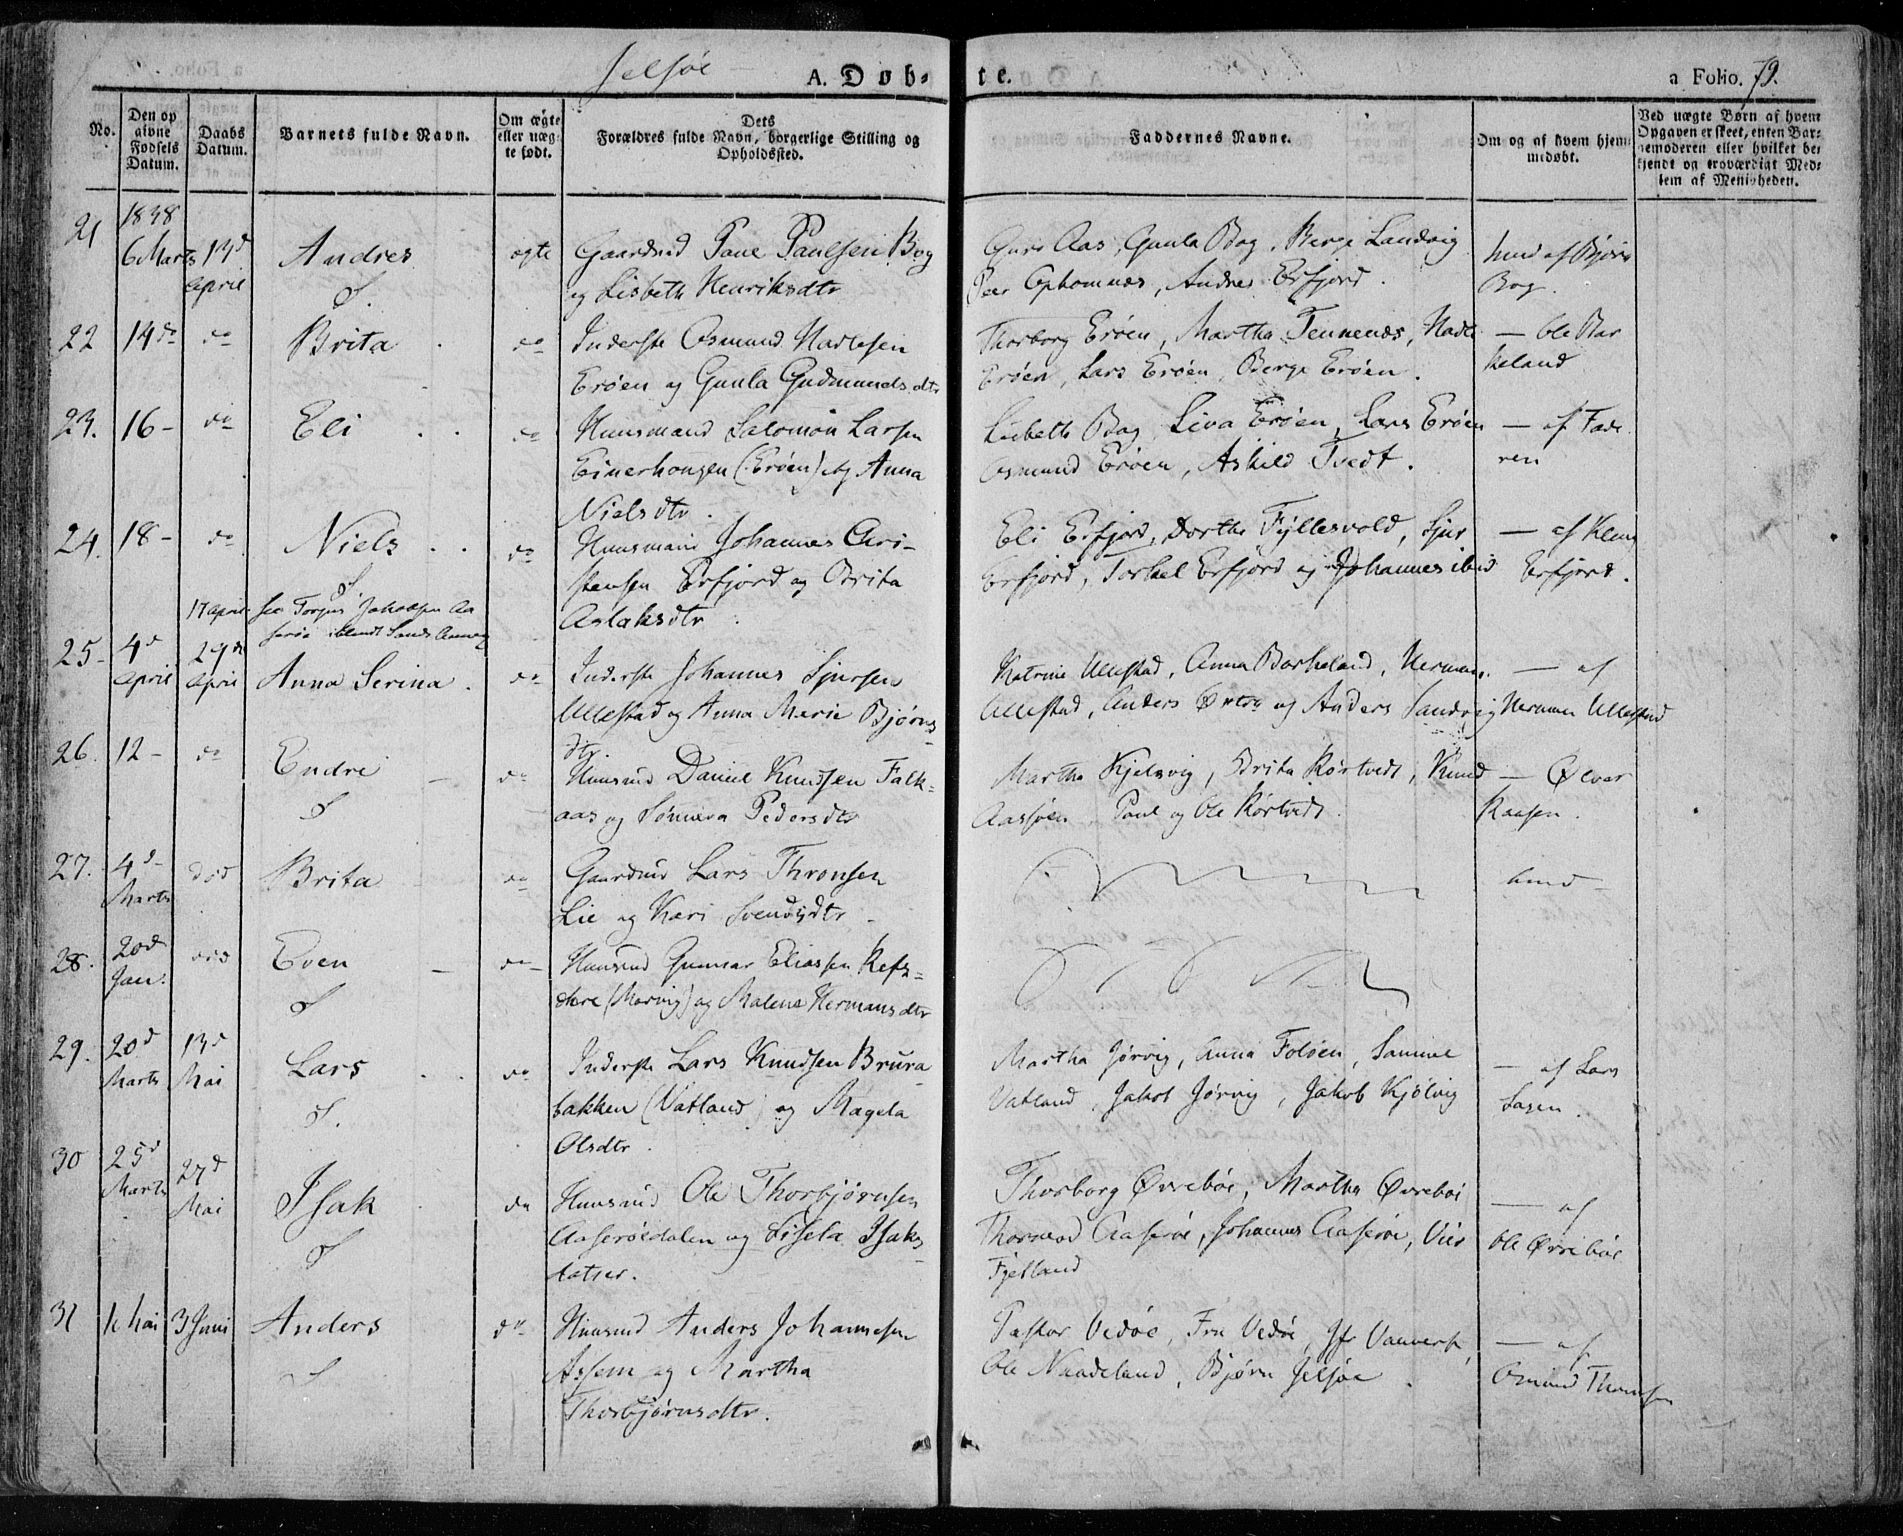 Jelsøe
A. Døb-
te.
a Folio. 79.
No.
Den op
givne
Fødsels
Datum.
Daabs
Datum.
Barnets fulde Navn.
Om ægte
eller uæg-
te født.
Dets
Forældres fulde Navn, borgerlige Stilling og
Opholdssted.
Faddernes Navne.
Om og af hvem hjem-
medøbt.
Ved uægte Børn af hvem
Opgaven er skeet, enten Bar-
nemoderen eller hvilket be-
kjendt og troværdigt Med-
lem af Menigheden.
1838
21 6 Marts 13d April Andres ægte Gaardmd Poul Paulsen Bog
og Lisbeth Henriksdtr
Guro Aas, Gunla Bog, Berge Landvig
Peer Ophomnæs, Andres Erfjord.
hmd af Bjørn
Bog.
S.
22 14do do Brita do Inderste Osmund Hadlesen
Erøen og Gunla Gudmundsdtr
Thorborg Erøen, Martha Tennenæs, Hadle
Erøen, Lars Erøen, Berge Erøen.
— Ole Bar
keland
23. 16 - do Eli do Huusmand Salomon Larsen
Einerhougen (Erøen) og Anna
Nielsdtr.
Lisbeth Bog, Siva Erøen, Lars Erøen
Osmund Erøen, Askild Tvedt.
— af Fade
ren
24. 18 - do Niels do Huusmand Johannes Chri-
stensen Erfjord og Brita
Aslaksdtr.
Eli Erfjord, Dorthe Fyllesvold, Sjur
Erfjord, Torkel Erfjord og Johannes ibid
— af Klaus
Erfjord.
S.
17 april see Torgus Jakobsen Aa
serøe iblandt Sands Annex
25 - 4d April 29de April Anna Serina. do Inderste Johannes Sjursen
Ullestad og Anna Marie Bjørns
dtr.
Katrine Ullestad, Anna Barkeland, Herman
Ullestad, Anders og Anders Sandvig
— af
Herman Ullestad
26. 12 - do Endre do Huusmd Daniel Knudsen Falk-
aas og Sønneva Pedersdtr
Martha Kjelsvig, Brita Rørtvedt, Knud
Aassøen, Poul og Ole Rørtvedt.
— Ølver
Knutsen.
S
27. 4d - Marts død Brita do Gaardmd Lars Thronsen
Lie og Kari Svendsdtr
hmd -
28. 20d Jan. død Even do Huusmd Gunnar Eliassen Refs-
dere (Marvig) og Malene Hermansdtr
S
29. 20d Marts 13d Mai Lars do Inderste Lars Knudsen Brura
bakken (Vatland) og Magela
Olsdtr.
Martha Jørvig, Anna Foløen, Samuel
Vatland, Jakob Jørvig, Jakob Kjølvig
— af Lars
Sagen.
S.
30 25d Marts 27d Mai Isak do Huusmd Ole Thorbjørnsen
Aaserøedalen og Sisela Isaks
datter.
Thorborg Øvrebøe, Martha Øvrebøe
Thormod Aaserøe, Johannes Aaserøe,
Fjetland
— af
Ole Øvrebøe
S
31 1 Mai 3 Juni Anders do Huusmd Anders Johannesen
Assem og Martha
Thorbjørnsdtr.
Pastor Vedøe, Fru Vedøe, Jfr
Ole Naadeland, Bjørn Jelsøe.
— af
Omund Thomsen
S